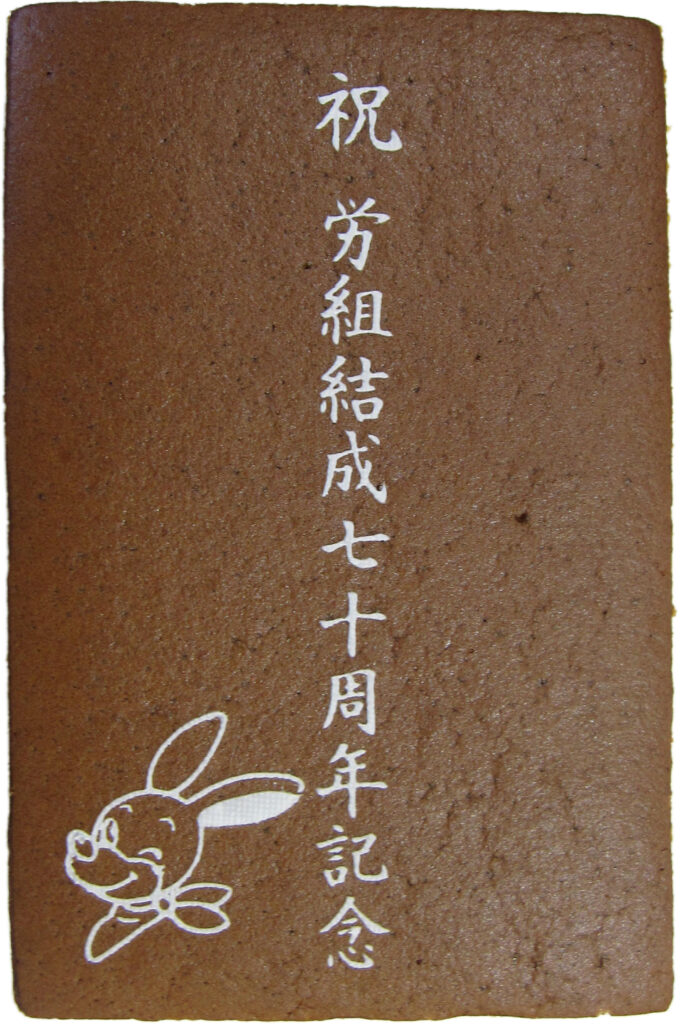 祝 労組結成七十周年記念